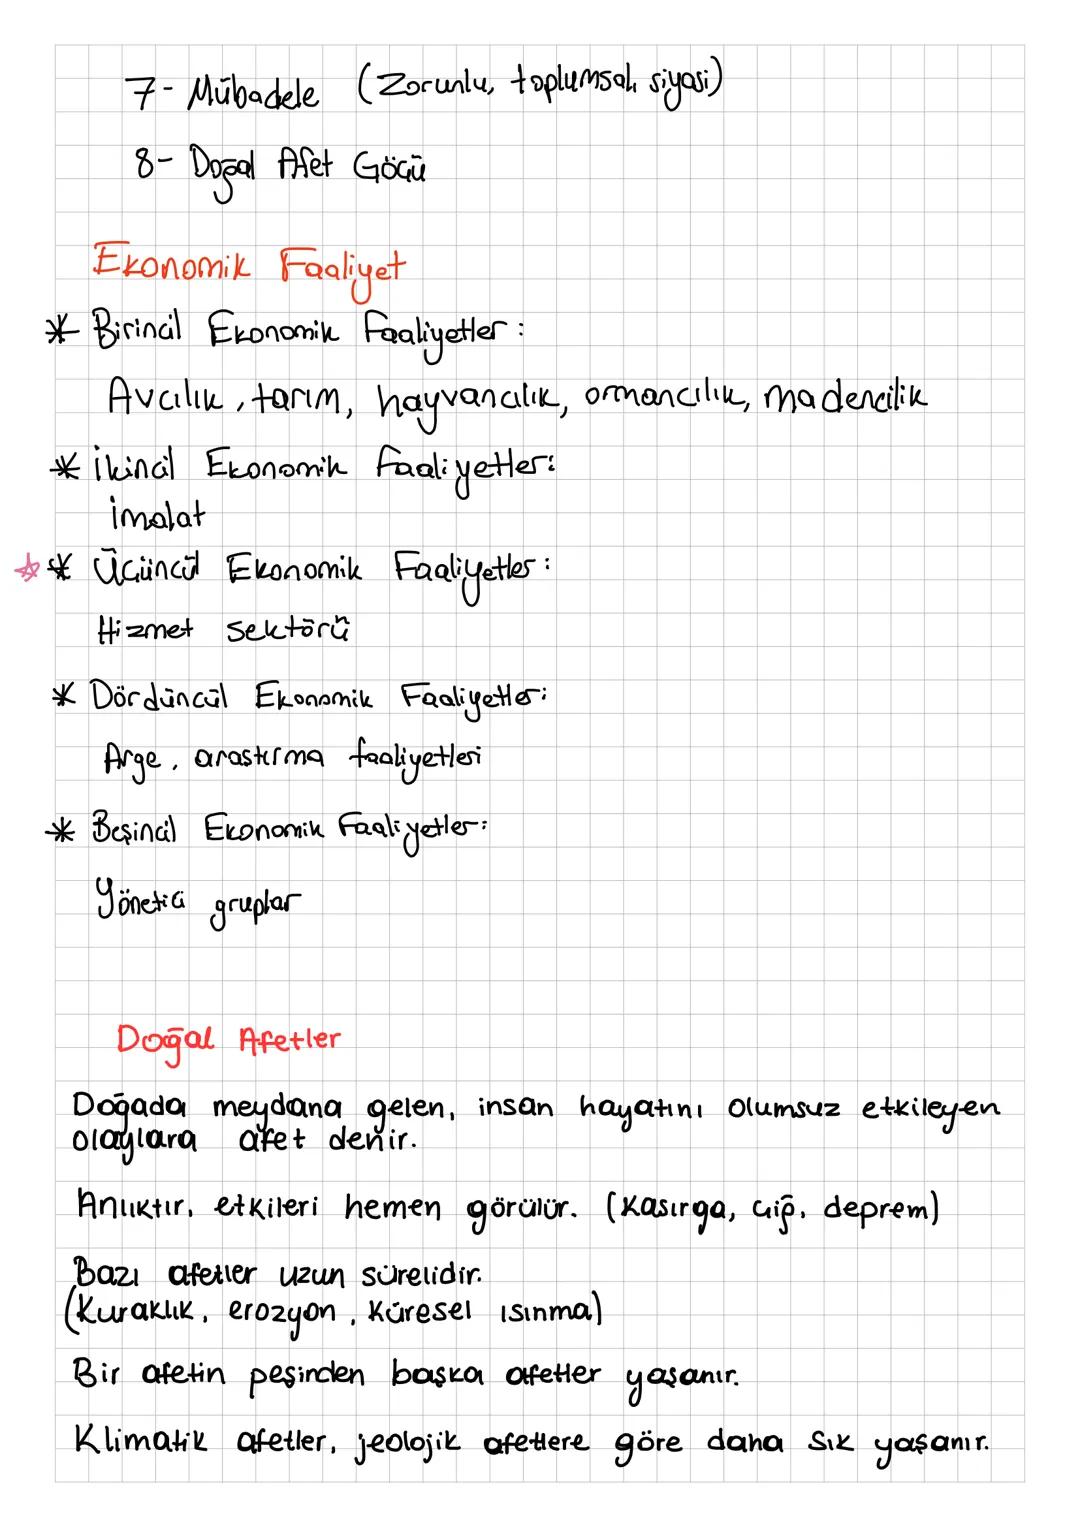 7- Mübadele (Zorunlu, toplumsal, siyasi)
8- Doğal Afet Göçü
Ekonomik Faaliyet
* Birincil Ekonomik Faaliyetler:
Avcılık, tarım, hayvancılık, ormancılık, madencilik
* İkincil Ekonomik Faaliyetler:
İmalat
☆* Üçüncül Ekonomik Faaliyetler:
Hizmet sektörü
* Dördüncül Ekonomik Faaliyetler:
Arge, arastırma faaliyetleri
* Beşincil Ekonomik Faaliyetler:
Yönetici gruplar
Doğal Afetler
Doğada meydana gelen, insan hayatını olumsuz etkileyen
olaylara afet denir.
Anlıktır, etkileri hemen görülür. (Kasırga, çığ, deprem)
Bazı afetler uzun sürelidir.
(Kuraklık, erozyon, Küresel ısınma)
Bir afetin peşinden başka afetler yaşanır.
Klimatik afetler, jeolojik afetlere göre daha sık yaşanır.